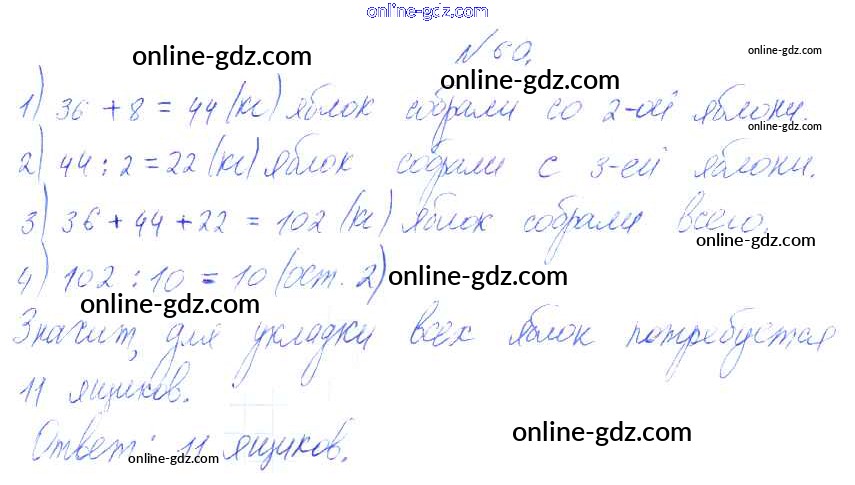 online-gdz.com
№ 60.
online-gdz.com
online-gdz.com
online-gdz.com
1) 36 + 8 = 44 (кг) яблок собрали со 2-ой яблони.
online-gdz.com
2) 44 : 2 = 22 (кг) яблок собрали с 3-ей яблони.
3) 36 + 44 + 22 = 102 (кг) яблок собрали всего.
online-gdz.com
4) 102 : 10 = 10 (ост. 2)
online-gdz.com
online-gdz.com
Значит, для укладки всех яблок потребуется
11 ящиков.
Ответ: 11 ящиков.
online-gdz.com
online-gdz.com